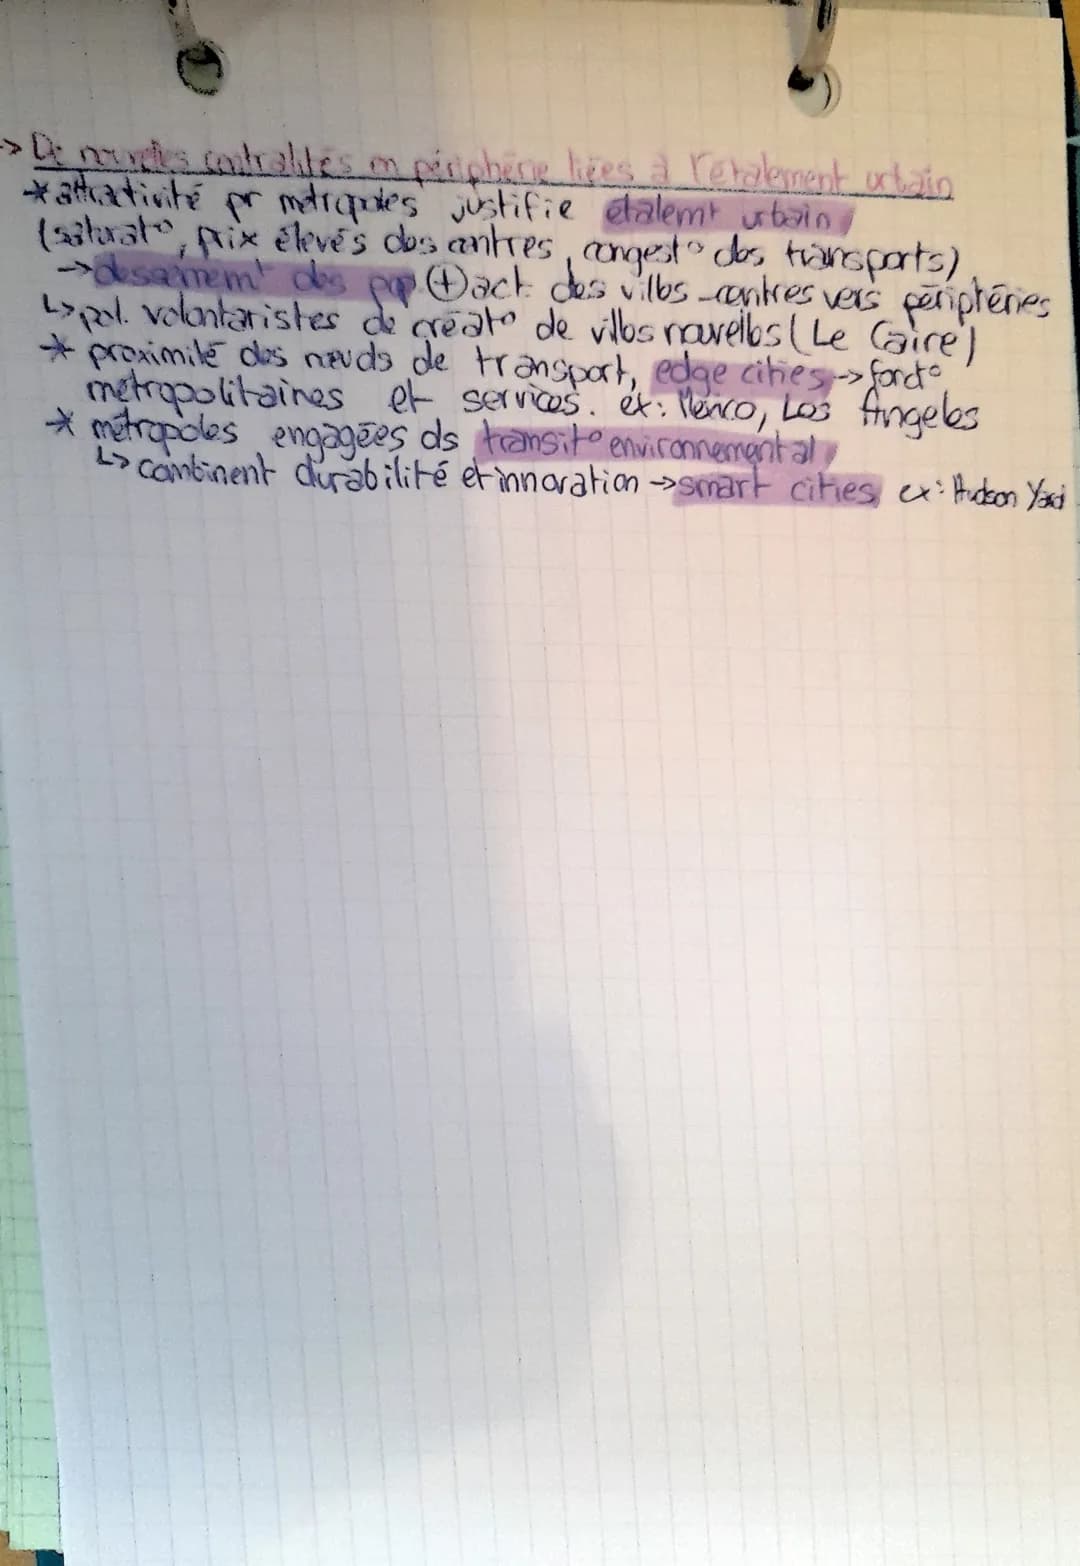 -> De nouvelles centralités en périphérie liées à l'étalement urbain
* attractivité pr métropoles justifie étalemt urbain
(saturat°, prix élevés des centres, congest° des transports)
-> desserremt des pop ⊕ act. des villes-centres vers périphéries
↳ pol. volontaristes de créat° de villes nouvelles (Le Caire)
* proximité des nœuds de transport, edge cities -> fonct°
métropolitaines et services. ex: Mexico, Los Angeles
* métropoles engagées ds transit° environnemental
↳ combinent durabilité et innovation -> smart cities ex: Hudson Yard